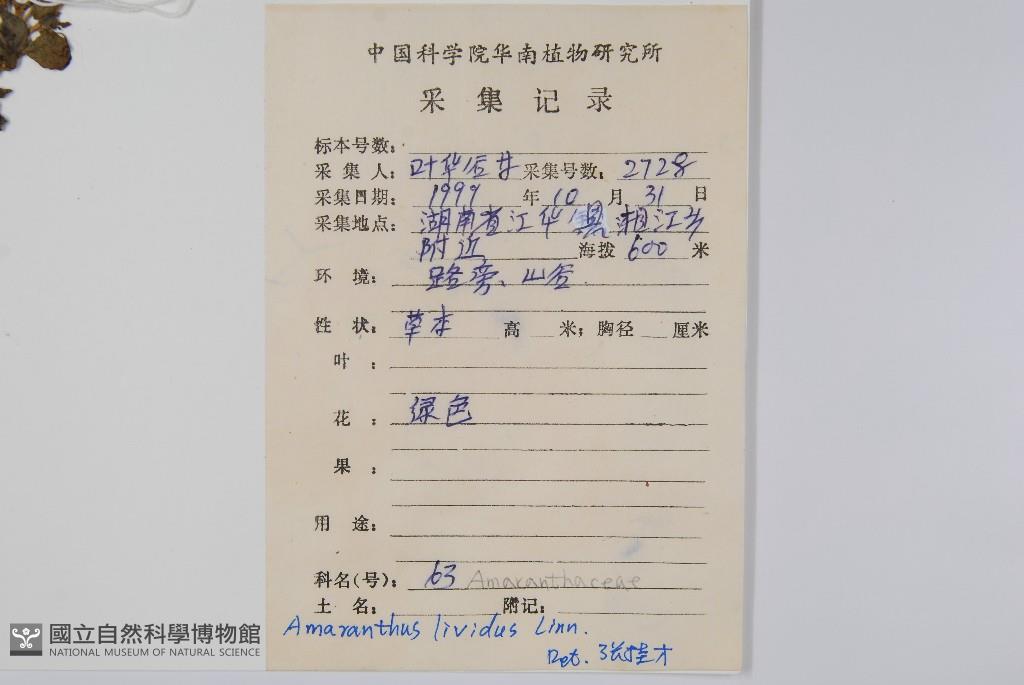 中国科学院华南植物研究所
采集记录
标本号数:
采集人: 叶华谷 采集号数: 2728
采集日期: 1999 年 10 月 31 日
采集地点: 湖南省江华县湘江乡
附近 海拨 600 米
环境: 路旁、山谷
性状: 草本 高 米; 胸径 厘米
叶:
花: 绿色
果:
用途:
科名(号): 63 Amaranthaceae
土名: 附记:
Amaranthus lividus Linn.
Det. 张桂才
國立自然科學博物館
NATIONAL MUSEUM OF NATURAL SCIENCE